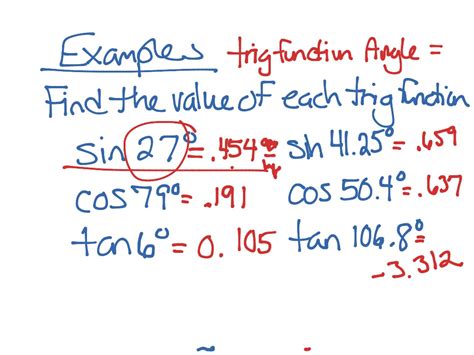 Examples trig function Angle =
Find the value of each trig function
sin 27° = .454 sin 41.25° = .659
cos 79° = .191 cos 50.4° = .637
tan 6° = 0.105 tan 106.8° =
-3.312